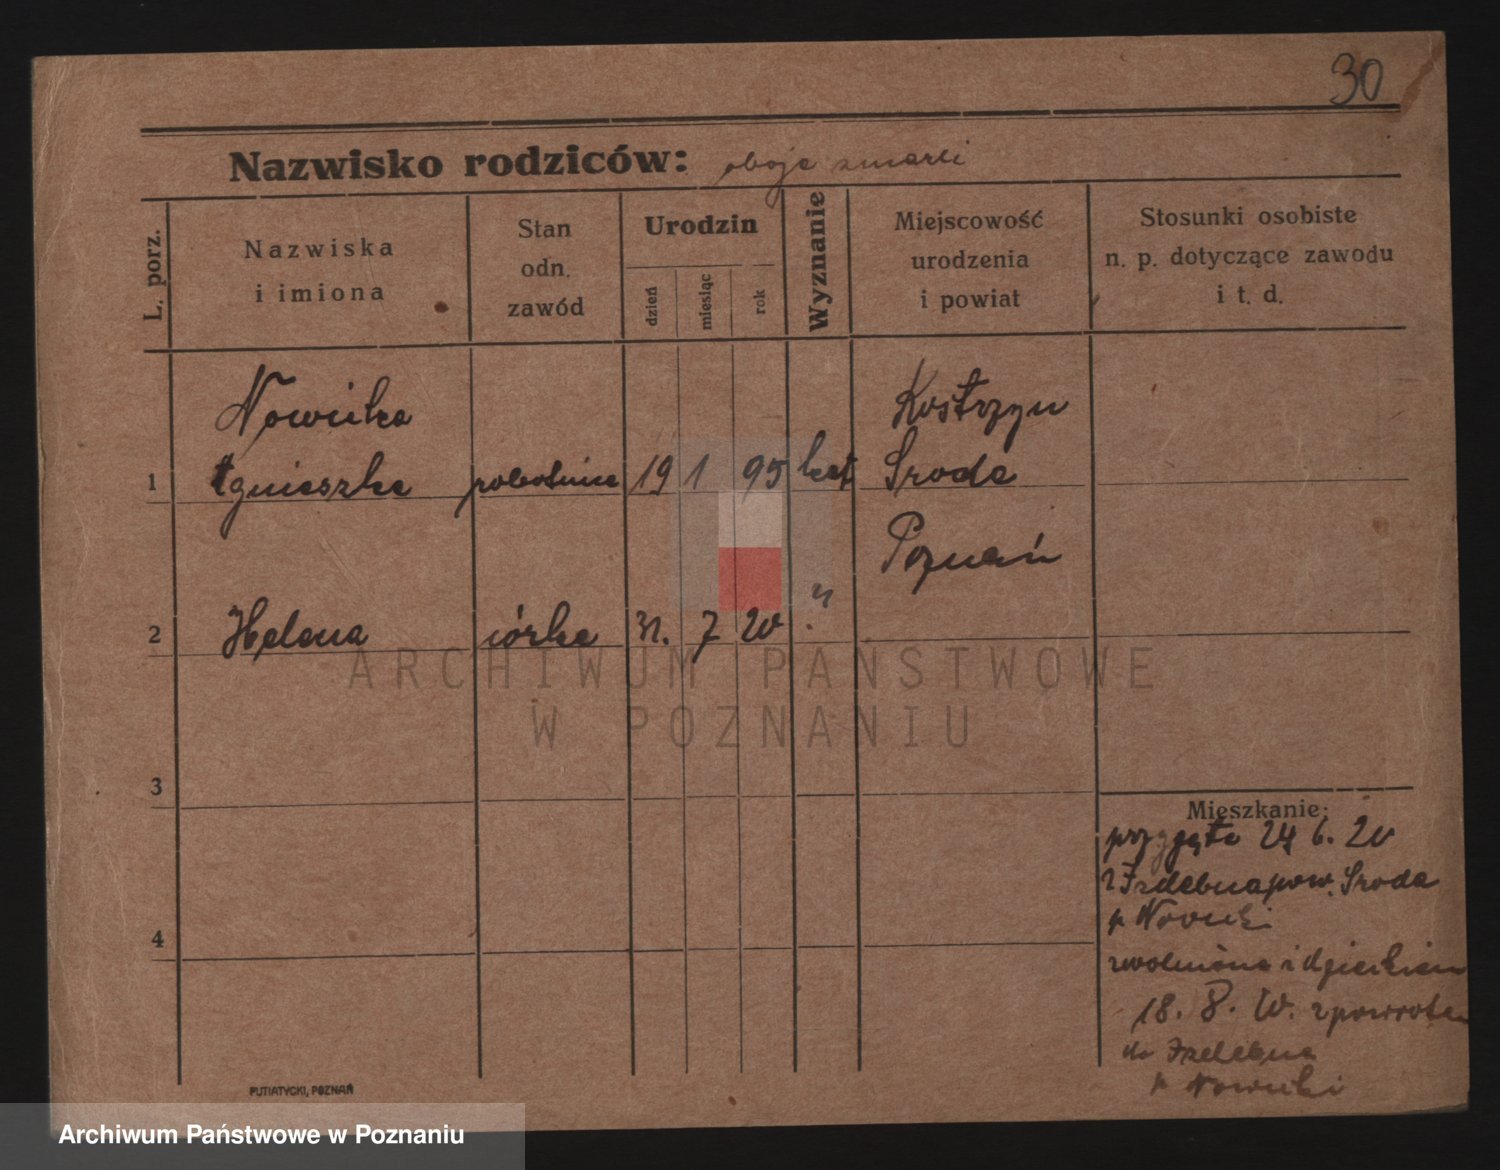 30
Nazwisko rodziców: oboje zmarli
L. porz.
Nazwiska
i imiona
Stan
odn.
zawód
Urodzin
dzień
miesiąc
rok
Wyznanie
Miejscowość
urodzenia
i powiat
Stosunki osobiste
n. p. dotyczące zawodu
i t. d.
Nowicka Kostrzyn
1 Agnieszka robotnica 19 1 95 kat Sroda
Poznań
2 Helena córka 31. 7 20 "
3
Mieszkanie:
przyjęta 24 6. 20
pow. Sroda
p Nowicki
4
zwolniona z dzieckiem
18. 8. 20. z powrotem
do
p Nowicki
PUTIATYCKI, POZNAŃ
ARCHIWUM PAŃSTWOWE
W POZNANIU
Archiwum Państwowe w Poznaniu